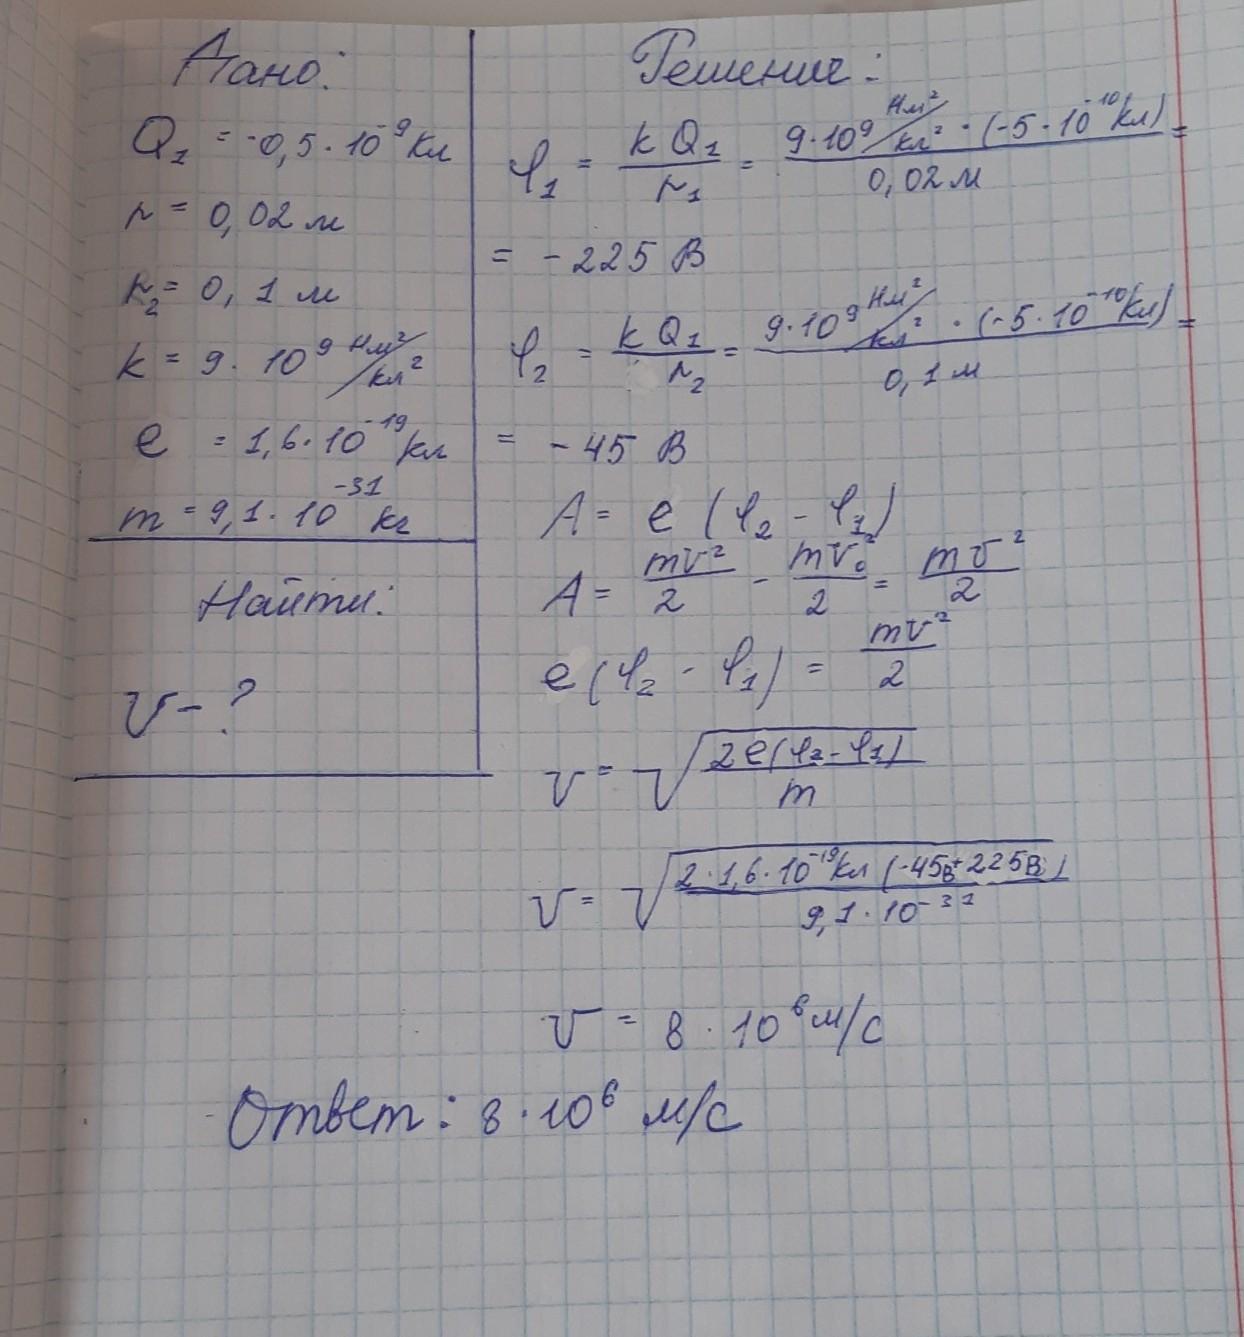 Дано:
Q₁ = -0,5·10⁻⁹Кл
r = 0,02 м
r₂ = 0,1 м
k = 9·10⁹ Нм²/кл²
e = 1,6·10⁻¹⁹кл
m = 9,1·10⁻³¹ кг
Найти:
v - ?
Решение:
φ₁ = kQ₁/r₁ = 9·10⁹ Нм²/кл² · (-5·10⁻¹⁰Кл)/0,02 м =
= -225 В
φ₂ = kQ₁/r₂ = 9·10⁹ Нм²/кл² · (-5·10⁻¹⁰Кл)/0,1 м =
= -45 В
A = e(φ₂ - φ₁)
A = mv²/2 - mv₀²/2 = mv²/2
e(φ₂ - φ₁) = mv²/2
v = √(2e(φ₂-φ₁)/m)
v = √(2·1,6·10⁻¹⁹кл (-45В+225В)/9,1·10⁻³¹)
v = 8·10⁶ м/с
Ответ: 8·10⁶ м/с